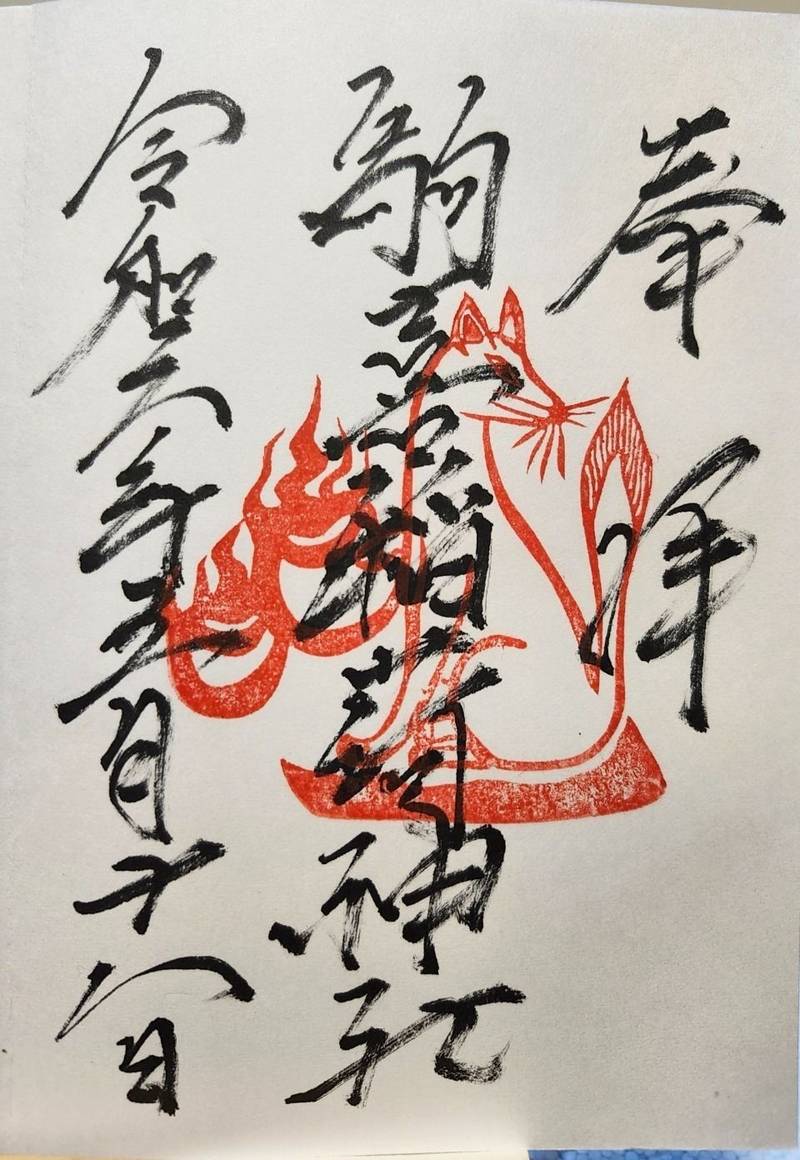 奉拝
駒稲荷神社
令和六年五月十八日